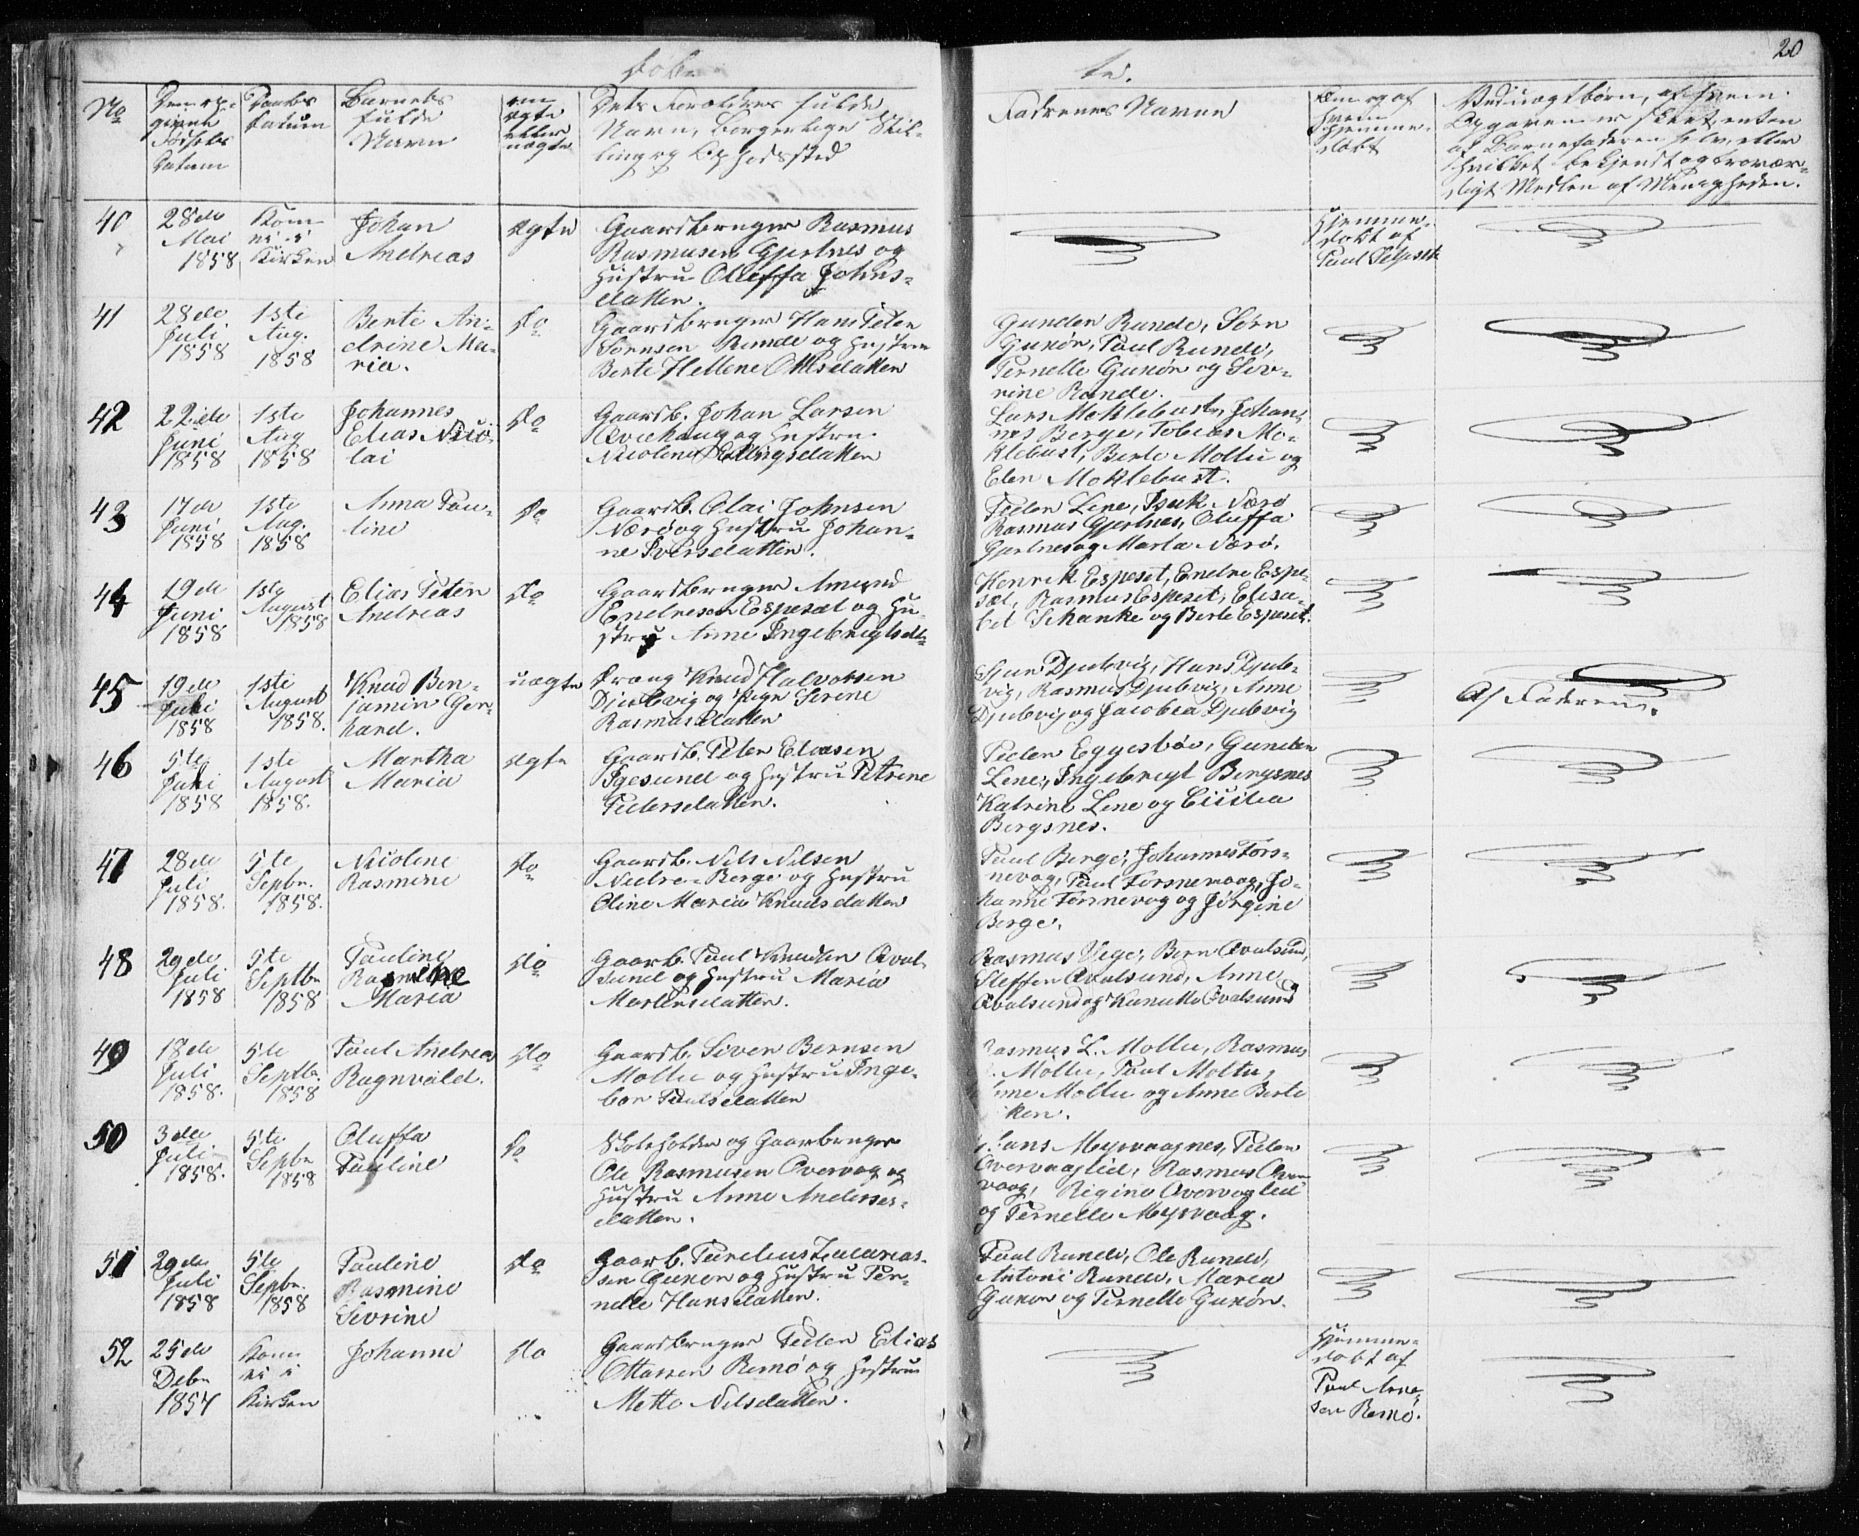 Døbte.
20
No
Den op-
givne
Fødsels
Datum
Daabs
Datum
Barnets
fulde
Navn
om
ægte
eller
uægte
Dets Forældres fulde
Navn, borgerlige Stil-
ling og Opholdssted
Faddernes Navne
Om og af
hvem
hjemme-
døbt
Ved uægte børn, af hvem
Opgaven er skeet, enten
af Barnefaderen selv, eller
hvilket bekjendt og trovær-
digt Medlem af Menigheden.
40
28de
Mai
1858
Kom
ei i
Kirken
Johan
Andreas
ægte
Gaardbruger Rasmus
Rasmusen Gjerdnes og
Hustru Oluffa Johns-
datten.
Hjemme-
døbt af
Paul
41
28de
Juli
1858
1ste
Aug.
1858
Berte An-
drine Ma-
ria.
do
Gaardbruger Hans Peter
Sørnsen Runde og Hustru
Berte Hellene Ottesdatten
Gunder Runde, Sørn
Gurøn, Paul Runde,
Pernelle Gurøn og Siv-
rine Runde.
42
22de
Juni
1858
1ste
Aug
1858
Johannes
Elias Nico-
lai
do
Gaardb. Johan Larsen
Kvichaug og Hustru
Nicoline Ellingsdatten
Lars Moklebust, Johan-
nes Berge, Tobias Mo-
klebust, Berte Moltu og
Elen Moklebust.
43
17de
Juni
1858
1ste
Aug.
1858
Anna Pau-
line
do
Gaardb. Olai Johnsen
Nærø og Hustru Johan-
ne Iversdatten.
Peder Lene, Isak Nærø
Rasmus Gjerdnes, Oluffa
Gjerdnes og Marta Nærø.
44
19de
Juni
1858
1ste
August
1858
Elias Peter
Andreas
do
Gaardbruger Amund
Endresen Espesæt og Hu-
stru Anne Ingebrigtsdt-
Henrik Espeset, Endre Espe-
sæt, Rasmus Espeset, Elisa-
bet Schanke og Berte Espeset.
45
19de
Juni
1858
1ste
August
1858.
Knud Ben-
jamin Ger-
hard.
uægte
Dræng Knud Halvorsen
Djubvig og Pige Sirene
Rasmusdatten
Sjur Djubvig, Hans Djub-
vig, Rasmus Djubvig, Anne
Djubvig og Jacobea Djubvig
Af Faderen.
46
5te
Juli
1858
1ste
August
1858.
Martha
Maria
ægte
Gaardb. Peter Eliasen
Igesund og Hustru Petrine
Pedersdatten.
Peder Eggesbøe, Gunder
Lene, Ingebregt Bergsnes
Katrine Lene og Cicilia
Bergsnes.
47
28de
Juli
1858.
5te
Sepbr.
1858.
Nicoline
Rasmine
do
Gaardb. Nils Nilsen
Nedre-Berge og Hustru
Oline Maria Knudsdatten
Paul Berge, Johannes Tors-
nevag, Paul Torsnevaag, Jo-
hanne Torsnevag og Jørgine
Berge.
48
29de
Juli
1858
5te
Septbr
1858
Pauline
Rasmine
Maria
do
Gaarb. Paul Knudsen Qval-
sund og Hustru Maria
Mortensdatten.
Rasmus Vige, Bern Qvalsund,
Steffen Qvalsund, Anne
Qvalsund og Kanutte Qvalsund
49
18de
Juli
1858.
5te
Septbr.
1858
Paul Andreas
Ragnvald.
do
Gaardb. Siver Bernsen
Moltu og Hustru Inge-
bor Paulsdatten
Rasmus L. Moltu, Rasmus
Moltu, Paul Moltu,
Anne Moltu og Anne Berte
50
3die
Juli
1858.
5te
Sepbr
1858
Oluffa
Pauline
do
Skoleholder og Gaarbruger
Ole Rasmusen Overvog og
Hustru Anne Anderses-
datten.
Hans Myrvaagnes, Peder
Overvaaglid, Rasmus Over-
vaag, Regine Overvoglid
og Pernelle Myrvaag.
51
29de
Juli
1858
5te
Sepbr.
1858
Pauline
Rasmine
Sevrine
do
Gaarb. Zacarias-
sen Gurøn og Hustru Per-
nelle Hansdatten.
Paul Runde, Ole Runde,
Antoni Runde, Maria
Gurøn og Pernelle Gurøn.
52
25de
Debr
1857
Kom
ei i
Kirken
Johanne
do
Gaardbruger Peder Elias
Ottasen Remø og Hustru
Mette Nilsdatten.
Hjemme-
døbt af
Paul Arne-
sen Remø.